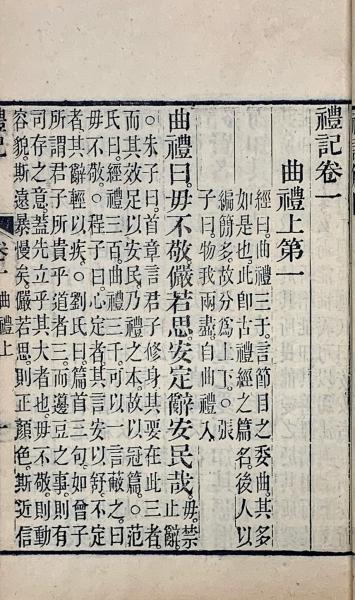 禮記卷一
曲禮上第一
經曰曲禮三千言節目之委曲其多
如是也此卽古禮經之篇名後人以
編簡多故分爲上下○張
子曰物我兩盡自曲禮入
曲禮曰毋不敬儼若思安定辭安民哉毋禁
止辭
○朱子曰首章言君子修身其要在此三者
而其效足以安民乃禮之本故以冠篇○范
氏曰經禮三百曲禮三千可以一言蔽之曰
毋不敬○程子曰心定者其言安以舒不定
者其辭輕以疾○劉氏曰篇首三句如曾子
所謂君子所貴乎道者三而籩豆之事則有
司存之意蓋先立乎其大者也毋不敬則動
容貌斯遠暴慢矣儼若思則正顏色斯近信
禮記
卷一
曲禮上
一